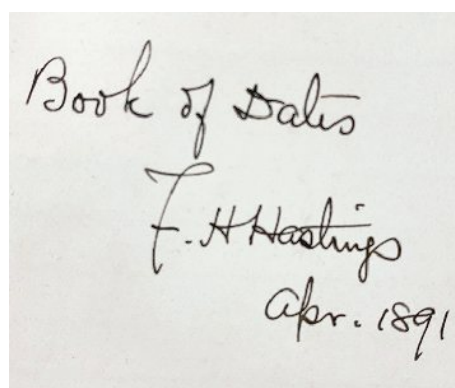 Book of Dates
F. H Hastings
Apr. 1891